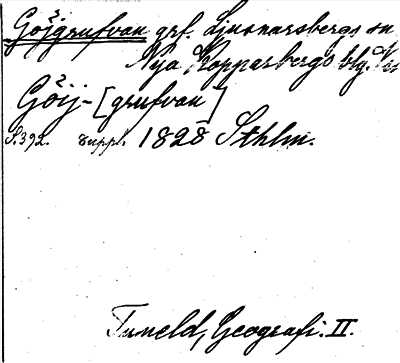 Göjgrufvan grf. Ljusnarsbergs sn
Nya Kopparbergs blg.
Göij-[grufvan]
S. 392. suppl. 1828 Sthlm.
Tuneld, Geografi. II.